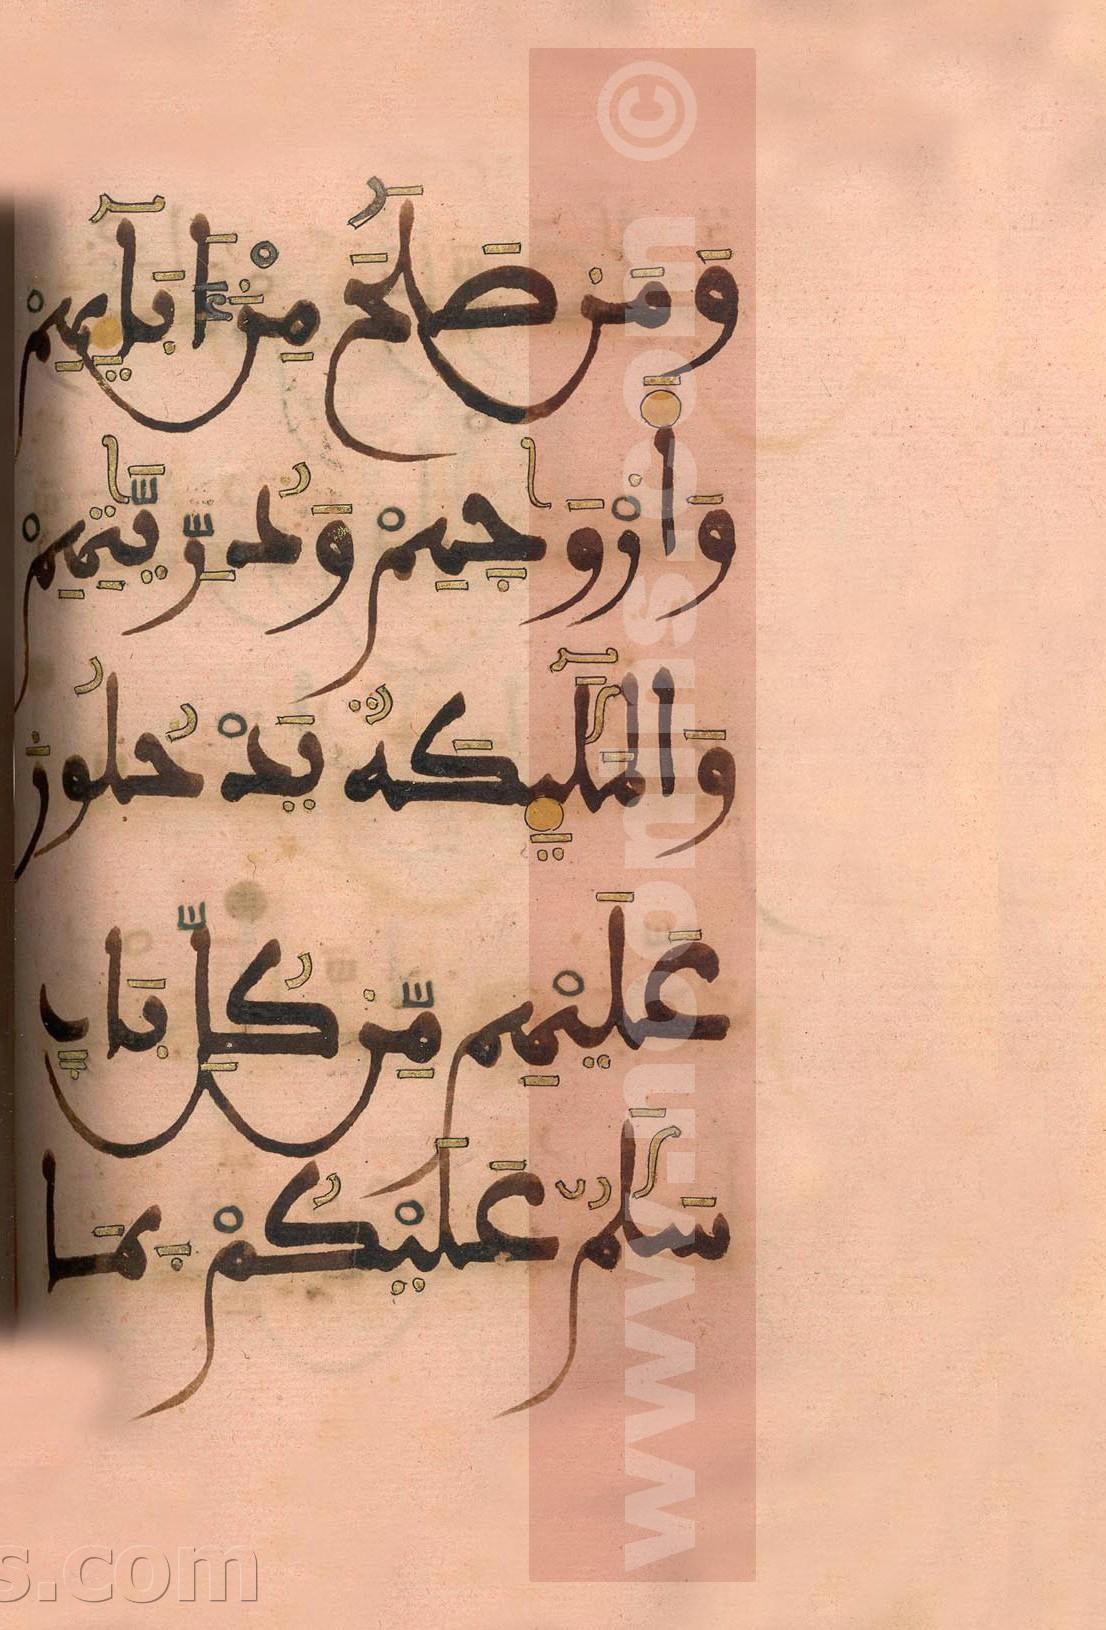 وَمَن صَلَحَ مِنَ ابَآئِهِمْ
وَأَزْوَاجِهِمْ وَذُرِّيَّتِهِمْ
وَالْمَلَٰٓئِكَةُ يَدْخُلُونَ
عَلَيْهِم مِّن كُلِّ بَابٍ
سَلَٰمٌ عَلَيْكُمْ بِمَا
www.moonis.com ©
s.com